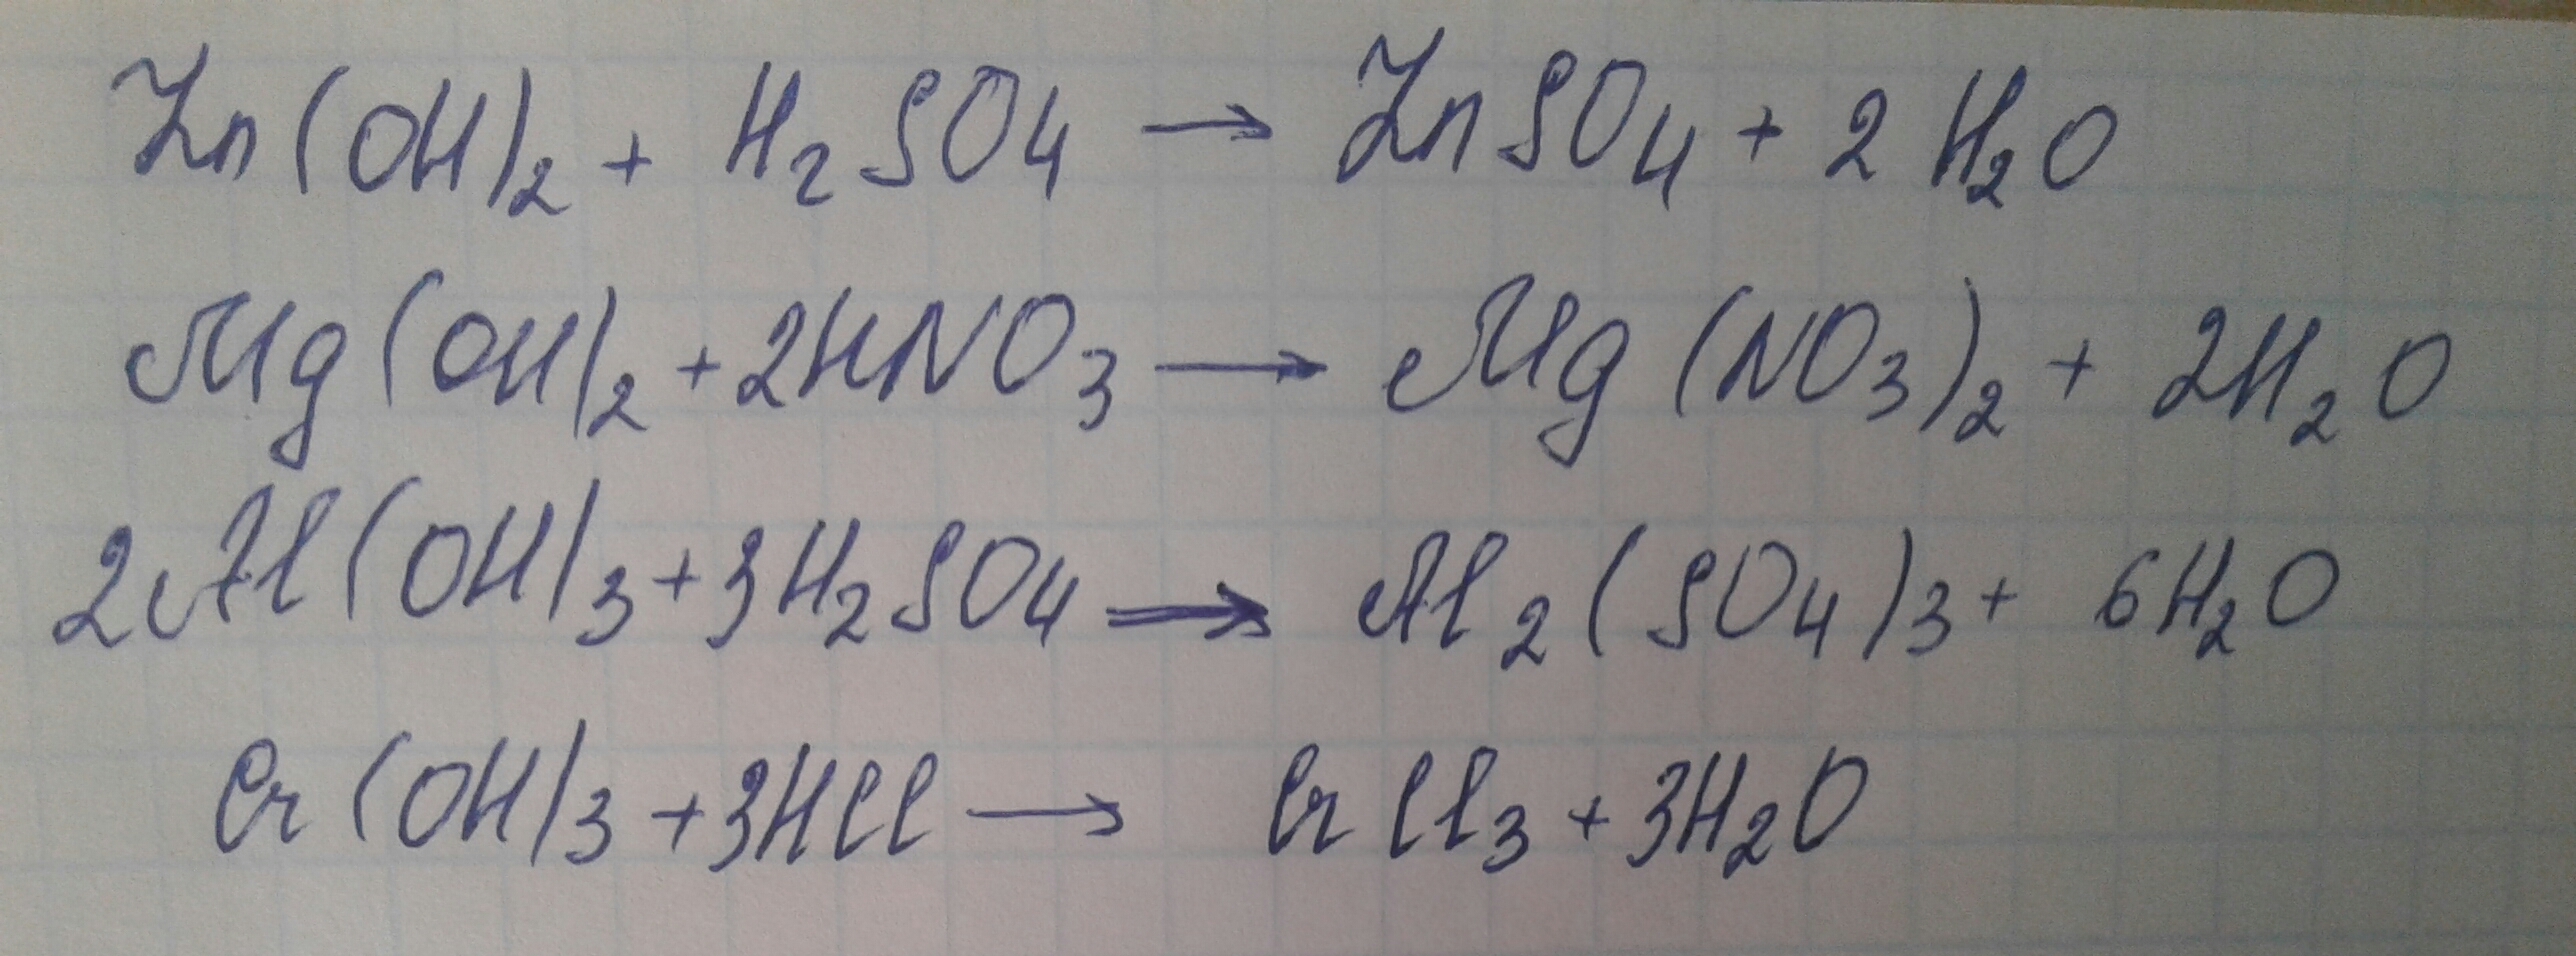 Zn(OH)₂ + H₂SO₄ → ZnSO₄ + 2H₂O
Mg(OH)₂ + 2HNO₃ → Mg(NO₃)₂ + 2H₂O
2Al(OH)₃ + 3H₂SO₄ → Al₂(SO₄)₃ + 6H₂O
Cr(OH)₃ + 3HCl → CrCl₃ + 3H₂O